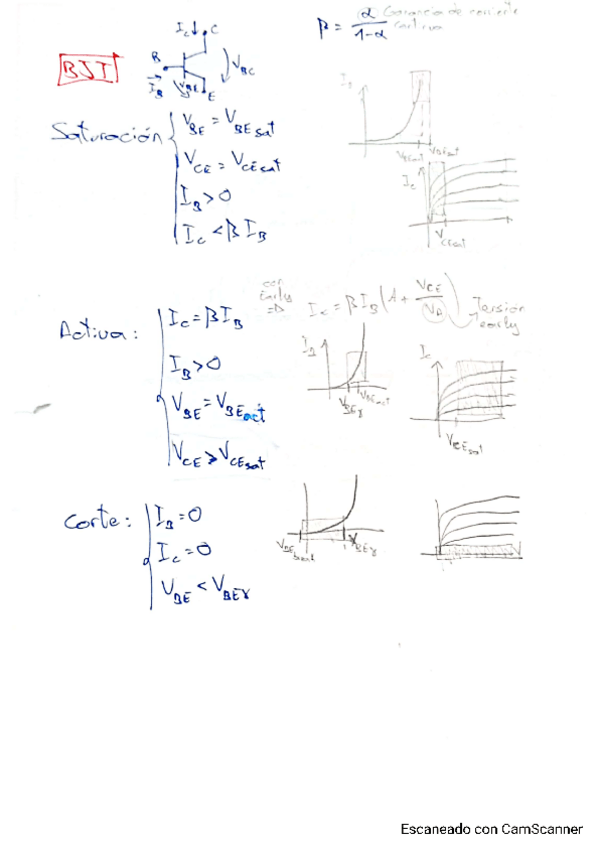 BJT
I_C C
B
I_B
V_BE E
V_BC
β = α / 1-α Ganancia de corriente continua
Saturación
V_BE = V_BEsat
V_CE = V_CEsat
I_B > 0
I_C < β I_B
I_B
V_BEact V_BEsat
I_C
V_CEsat
Activa:
I_C = β I_B
con Early => I_C = β I_B (1 + V_CE / V_A) Tensión early
I_B > 0
V_BE = V_BEact
V_CE > V_CEsat
I_B
V_BEγ V_BEact
I_C
V_CEsat
Corte:
I_B = 0
I_C = 0
V_BE < V_BEγ
V_BEγ
Escaneado con CamScanner